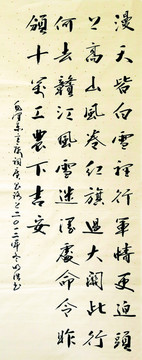 漫天皆白雪裡行軍情更迫頭
上高山風卷红旗過大關此行
何去贛江風雪迷漫處命令昨
頒十萬工農下吉安
毛澤東詞廣昌路上二〇一二年冬